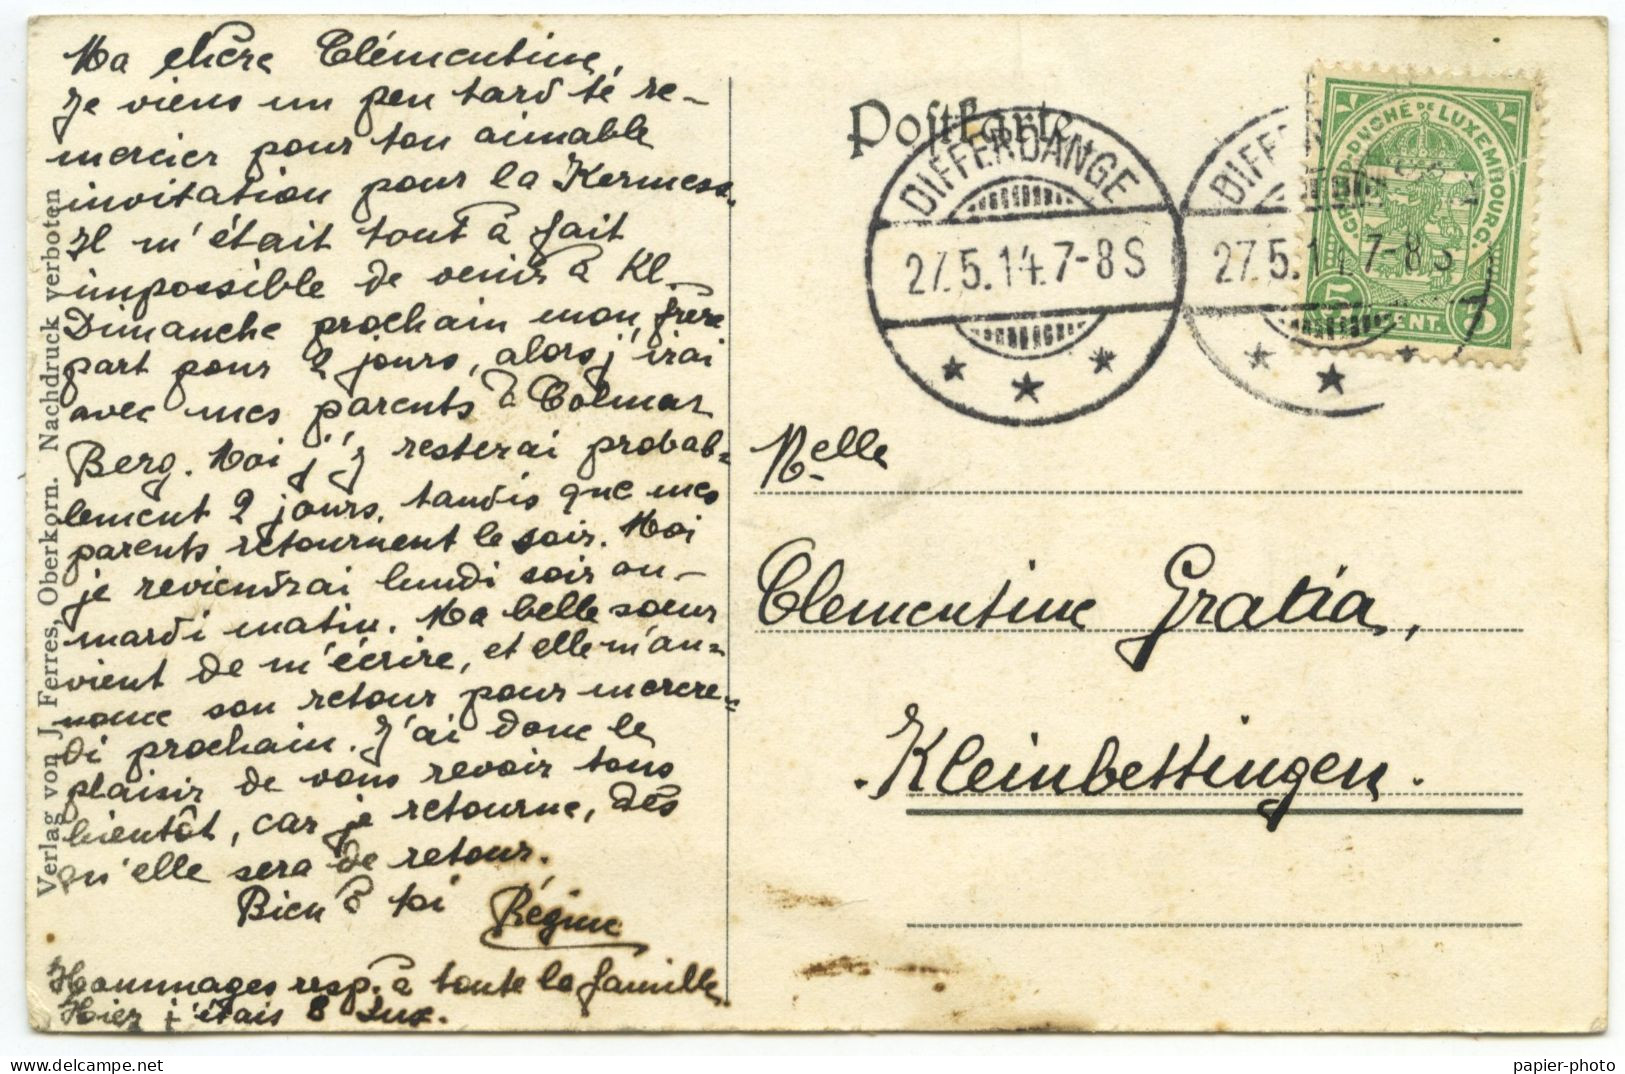 Ma chère Clémentine,
Je viens un peu tard te re-
mercier pour ton aimable
invitation pour la Kermess.
Il m'était tout à fait
impossible de venir à Kl.
Dimanche prochain mon frère
part pour 2 jours, alors j'irai
avec mes parents à Colmar
Berg. Moi j'y resterai probab=
lement 2 jours, tandis que mes
parents retournent le soir. Moi
je reviendrai lundi soir ou-
mardi matin. Ma belle soeur
vient de m'écrire, et elle m'an=
nonce son retour pour mercre=
di prochain. J'ai donc le
plaisir de vous revoir tous
bientôt, car je retourne, dès
qu'elle sera de retour.
Bien à toi Régine
Hommages resp. à toute la famille.
Hier j'étais à Lux.
Verlag von J. Ferres, Oberkorn. Nachdruck verboten
Postkarte
DIFFERDANGE
27.5.14.7-8S
DIFFER
27.5.14.7-8S
GRAND-DUCHÉ DE LUXEMBOURG.
5 CENT. 5
Melle
Clementine Gratia,
Kleinbettingen.
delcampe.net
papier-photo